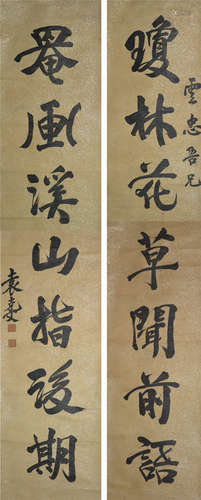 瓊林花草聞前語
雲忠吾兄
罨画溪山指後期
袁克文